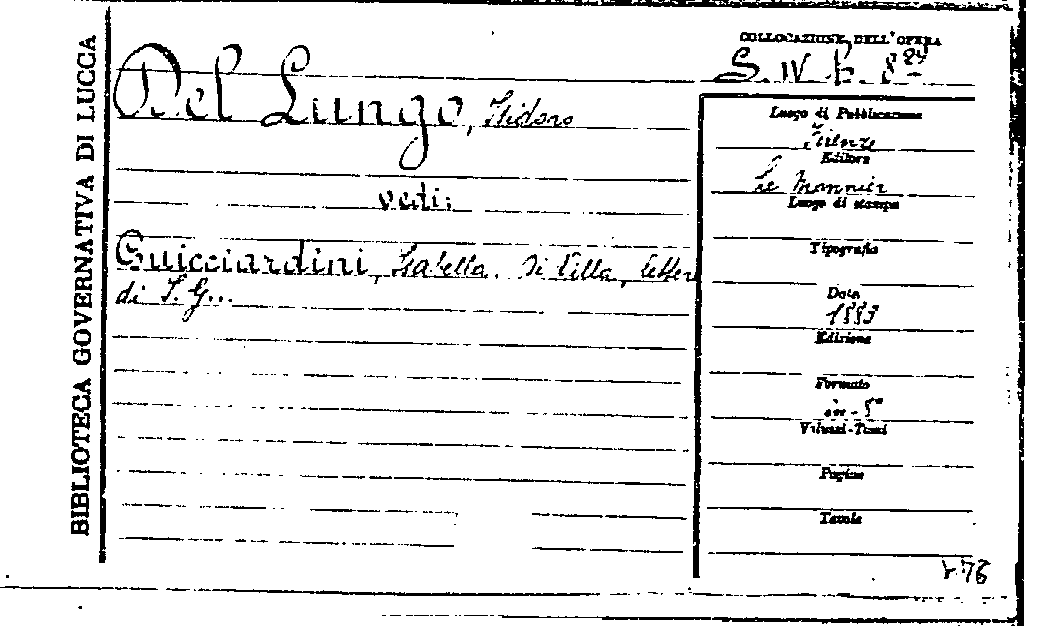 BIBLIOTECA GOVERNATIVA DI LUCCA
COLLOCAZIONE DELL'OPERA
S. IV b. 8 24
Del Lungo, Isidoro
vedi:
Guicciardini, Isabella. Di Villa, lettere
di I. G...
Luogo di Pubblicazione
Firenze
Editore
Le Monnier
Luogo di stampa
Tipografia
Data
1883
Edizione
Formato
in-8°
Volumi-Tomi
Pagine
Tavole